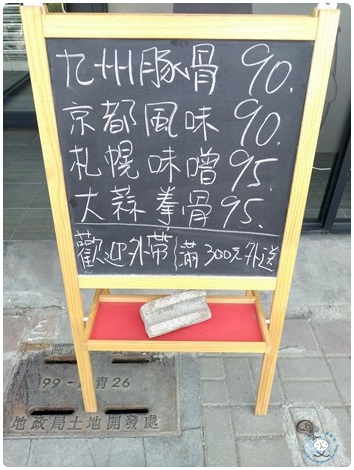 九州豚骨 90.
京都風味 90.
札幌味噌 95.
大蒜拳骨 95.
歡迎外帶/滿300元外送
99-青26
地政局土地開發處